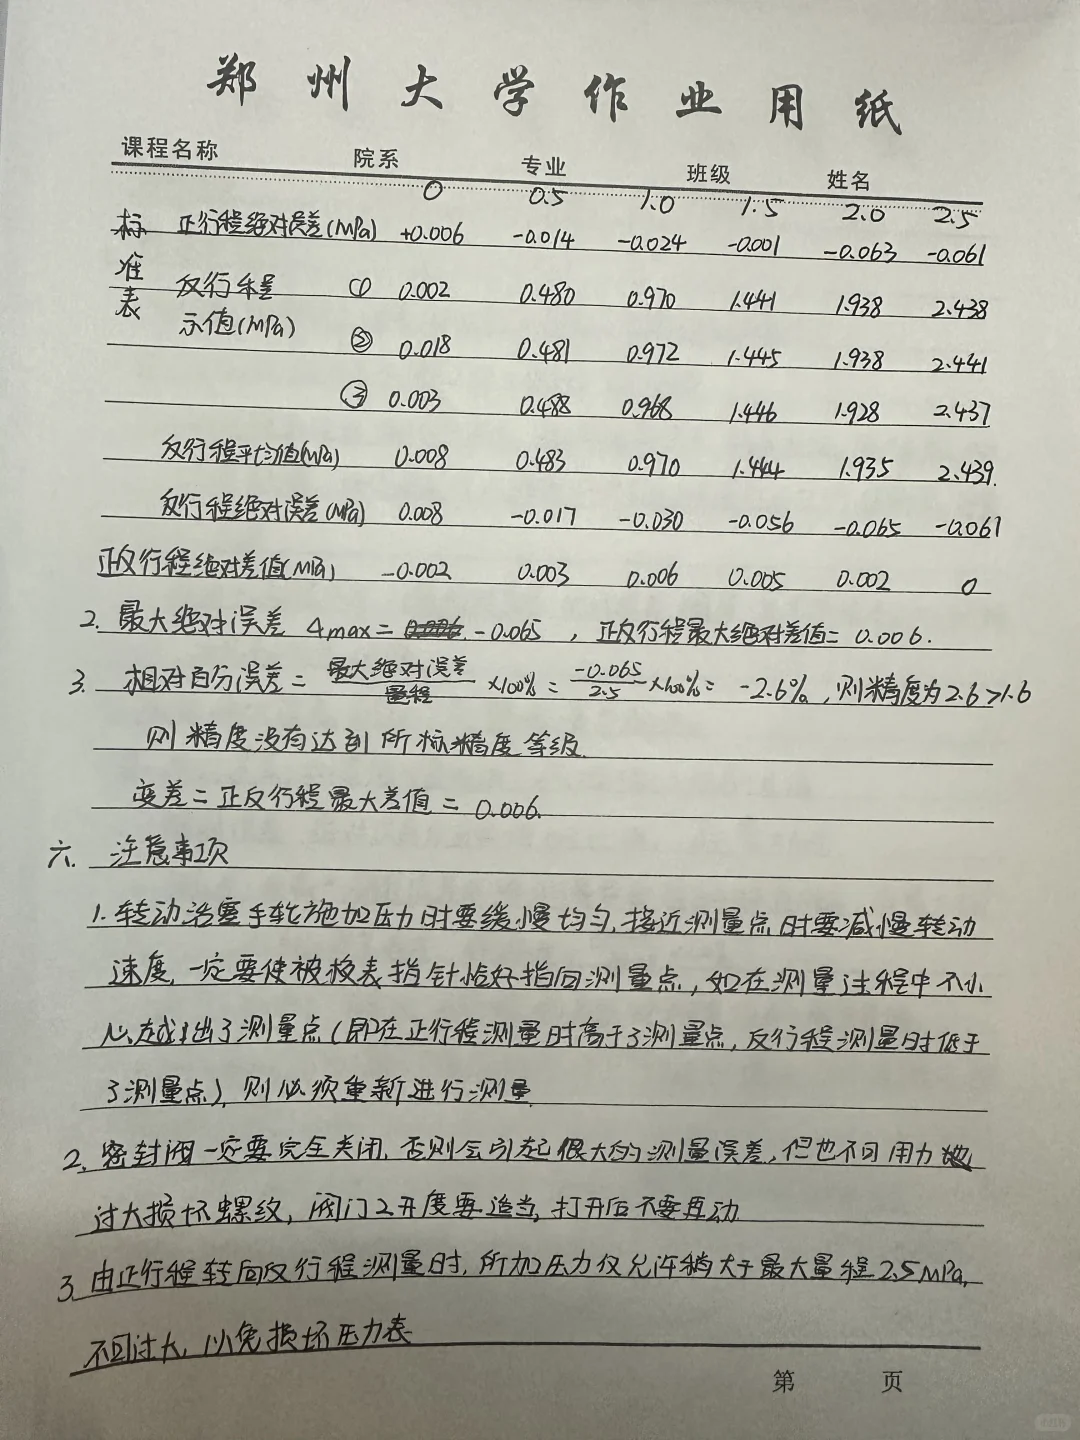 郑州大学作业用纸
课程名称 院系 专业 班级 姓名
0 0.5 1.0 1.5 2.0 2.5
标准表 正行程绝对误差(MPa) +0.006 -0.014 -0.024 -0.001 -0.063 -0.061
反行程示值(MPa) ① 0.002 0.480 0.970 1.441 1.938 2.438
② 0.018 0.481 0.972 1.445 1.938 2.441
③ 0.003 0.488 0.968 1.446 1.928 2.437
反行程平均值(MPa) 0.008 0.483 0.970 1.444 1.935 2.439.
反行程绝对误差(MPa) 0.008 -0.017 -0.030 -0.056 -0.065 -0.061
正反行程绝对差值(MPa) -0.002 0.003 0.006 0.005 0.002 0
2. 最大绝对误差 Δmax= -0.065 , 正反行程最大绝对差值= 0.006.
3. 相对百分误差= 最大绝对误差/量程 ×100% = -0.065/2.5 ×100% = -2.6%, 则精度为2.6>1.6
则精度没有达到所标精度等级.
变差=正反行程最大差值= 0.006.
六. 注意事项
1. 转动活塞手轮施加压力时要缓慢均匀, 接近测量点时要减慢转动
速度, 一定要使被校表指针恰好指向测量点, 如在测量过程中不小
心越出了测量点(即在正行程测量时高于了测量点, 反行程测量时低于
了测量点), 则必须重新进行测量.
2. 密封阀一定要完全关闭, 否则会引起很大的测量误差, 但也不可用力
过大损坏螺纹, 阀门2开度要适当, 打开后不要再动
3. 由正行程转向反行程测量时, 所加压力仅允许稍大于最大量程2.5MPa,
不可过大, 以免损坏压力表
第 页